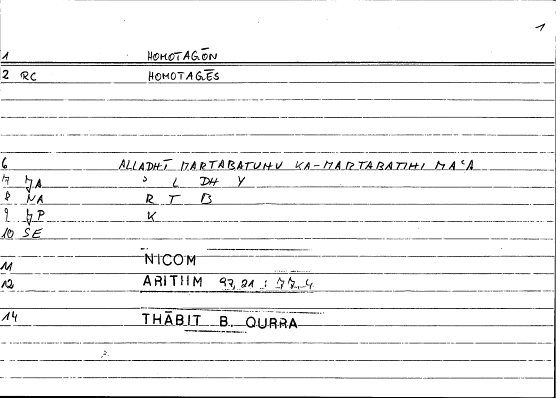 1
1 HOMOTAGŌN
2 RC HOMOTAGĒS
6 ALLADHĪ MARTABATUHU KA-MARTABATIHI MAʿA
7 JA ʾ L DH Y
8 NA R T B
9 JP K
10 SE
11 NICOM
12 ARITHM 93,21 : 77,4
14 THĀBIT B. QURRA